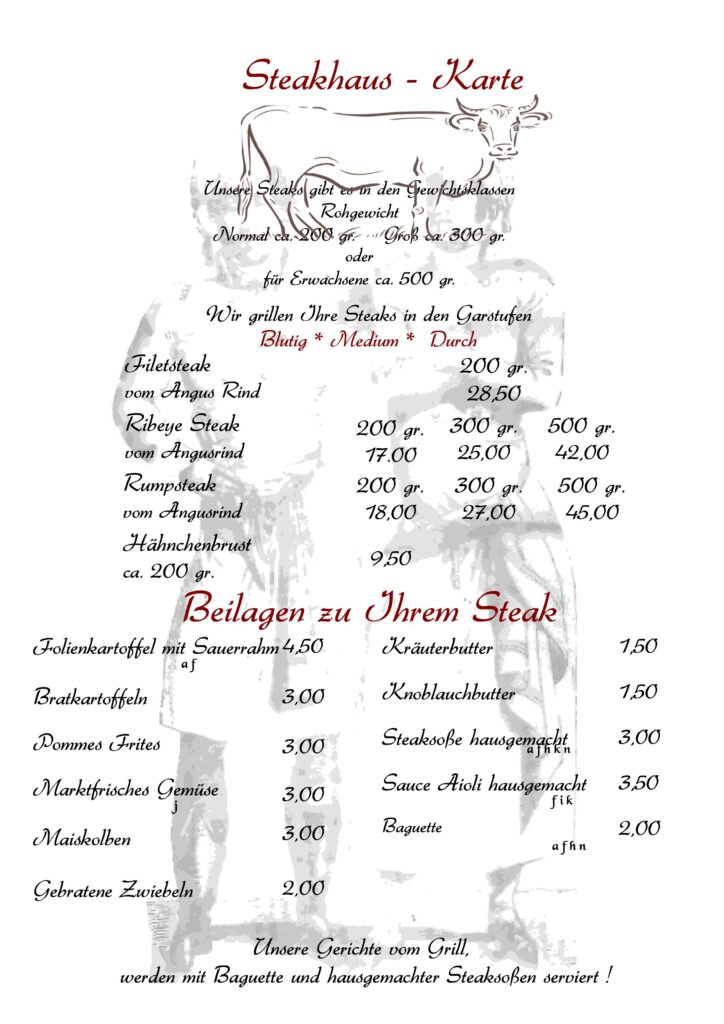 Steakhaus - Karte
Unsere Steaks gibt es in den Gewichtsklassen
Rohgewicht
Normal ca. 200 gr. Groß ca. 300 gr.
oder
für Erwachsene ca. 500 gr.
Wir grillen Ihre Steaks in den Garstufen
Blutig * Medium * Durch
Filetsteak 200 gr.
vom Angus Rind 28,50
Ribeye Steak 200 gr. 300 gr. 500 gr.
vom Angusrind 17.00 25,00 42,00
Rumpsteak 200 gr. 300 gr. 500 gr.
vom Angusrind 18,00 27,00 45,00
Hähnchenbrust 9,50
ca. 200 gr.
Beilagen zu Ihrem Steak
Folienkartoffel mit Sauerrahm 4,50
a f
Bratkartoffeln 3,00
Pommes Frites 3,00
Marktfrisches Gemüse 3,00
j
Maiskolben 3,00
Gebratene Zwiebeln 2,00
Kräuterbutter 1,50
Knoblauchbutter 1,50
Steaksoße hausgemacht 3,00
a f h k n
Sauce Aioli hausgemacht 3,50
f i k
Baguette 2,00
a f h n
Unsere Gerichte vom Grill,
werden mit Baguette und hausgemachter Steaksoßen serviert !